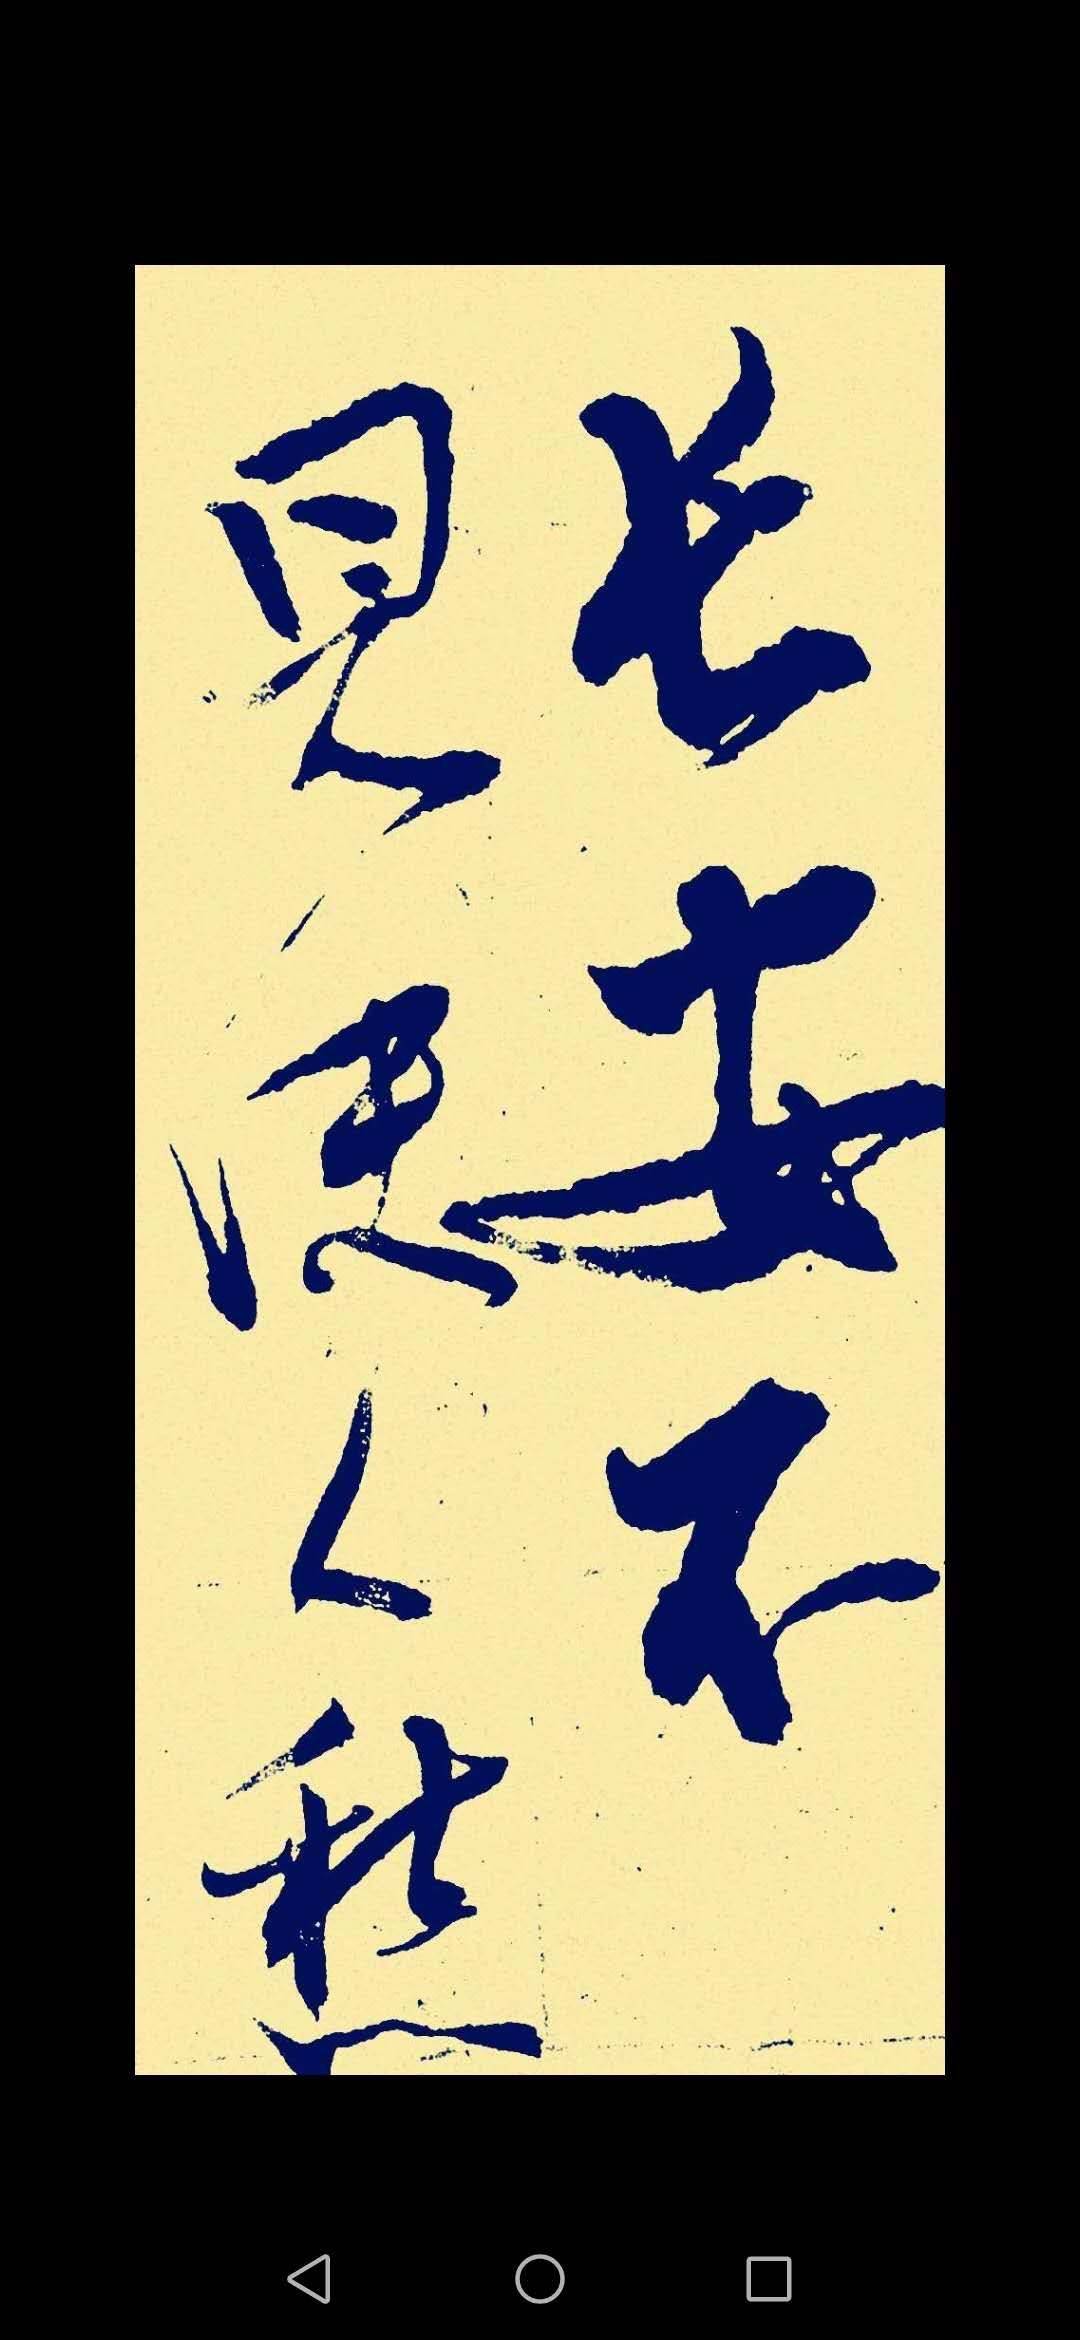 长安不
見使人愁